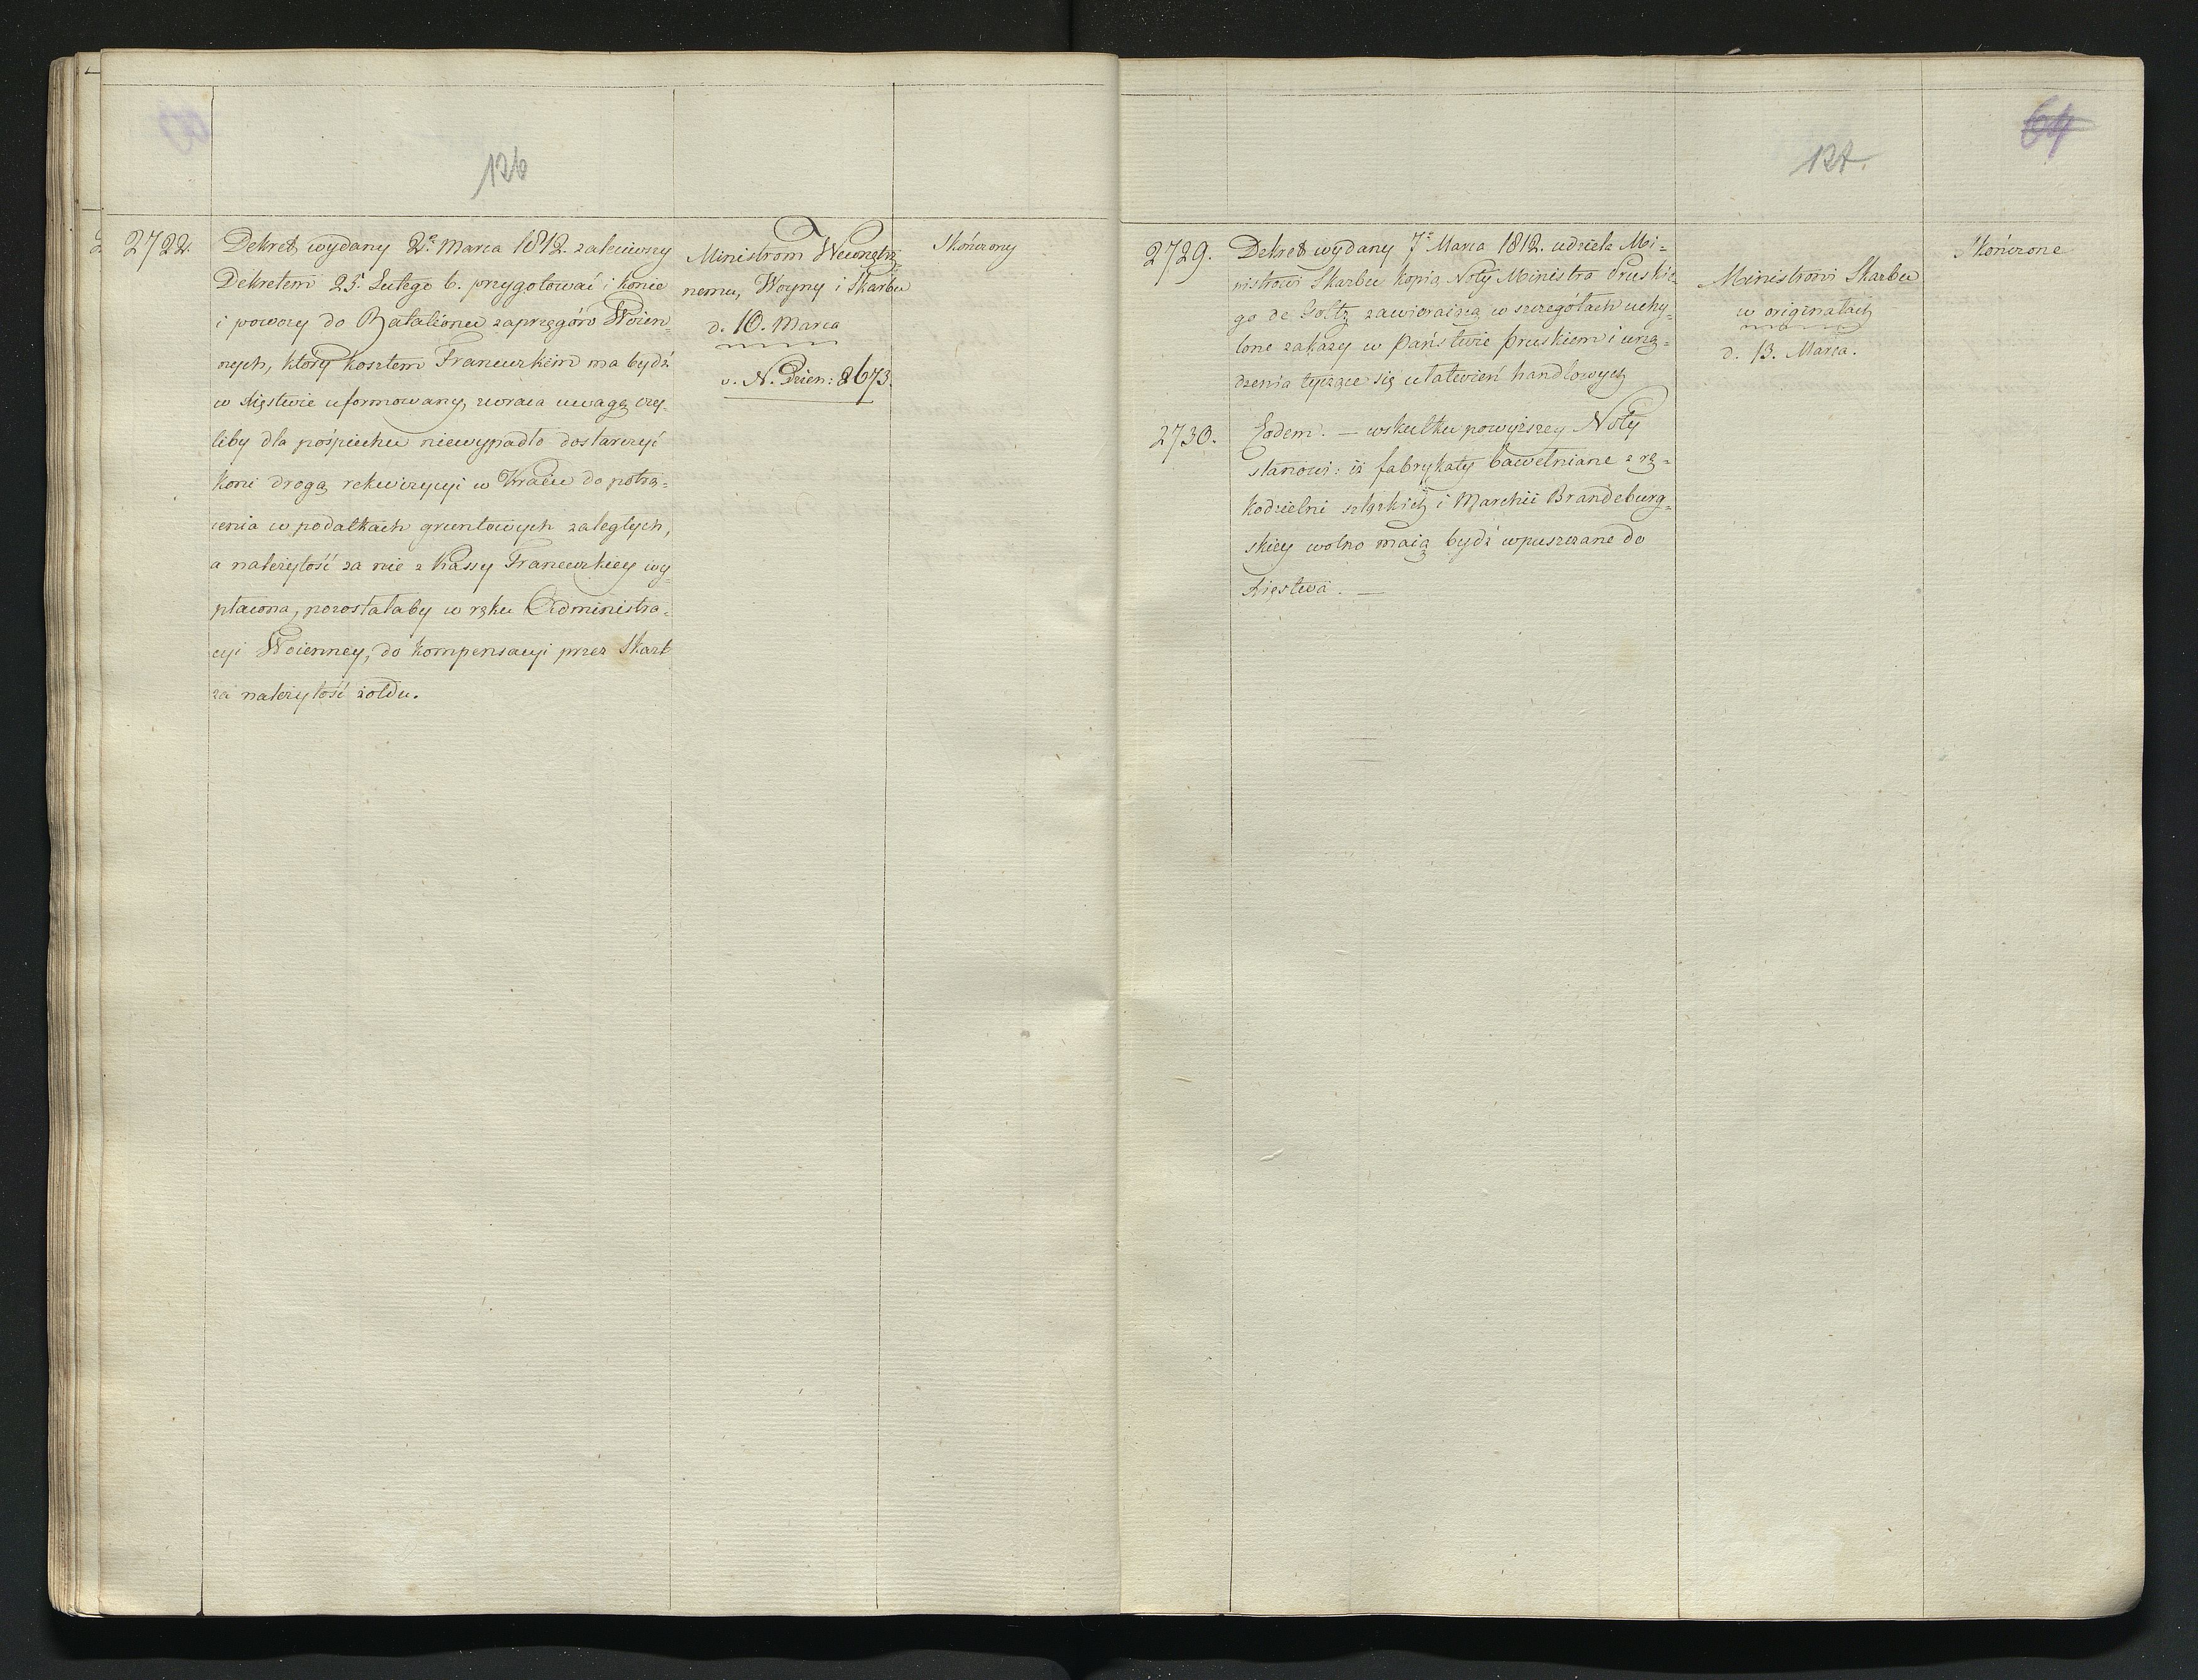 126
2722.
Dekret wydany 2º Marca 1812. zaleciwszy
Dekretem 25. Lutego b. przygotować i konie
i powozy do Batalionu zaprzęgów Woien-
nych, który kosztem Francuzkim ma bydź
w Xięstwie uformowany, zwraca uwagę czy-
liby dla pośpiechu niewypadło dostarczyć
koni drogą rekwizycyi w Kraiu do potrą-
cenia w podatkach gruntowych zaległych,
a należytość za nie z Kassy Francuzkiey wy-
płacona, pozostałaby w ręku Administra-
cyi Woienney, do kompensacyi przez Skarb
za należytość żołdu.
Ministrom Wewnętrz
nemu, Woyny i Skarbu
d. 10. Marca
v. N. Dzien: 8673.
Skończony
64
127.
2729.
Dekret wydany 7º Marca 1812. udziela Mi-
nistrowi Skarbu kopią Noty Ministra Pruskie-
go de Goltz zawieraiącą w szczegółach uchy-
lone zakazy w Państwie pruskiem i urzą-
dzenia tyczące się ułatwień handlowych
Ministrowi Skarbu
w originałach
d. 13. Marca.
Skończone
2730.
Eodem. — wskutku powyższey Noty
stanowi: iż fabrykaty bawełniane z rę-
kodzielni szląskich i Marchii Brandeburg-
skiey wolno maią bydź wpuszczane do
Xięstwa. —